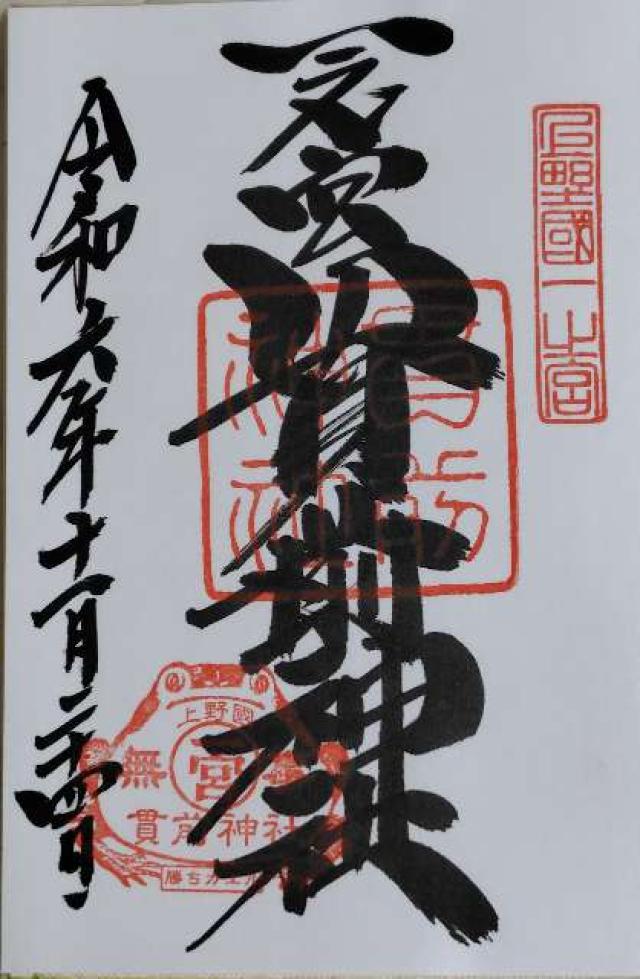 上野國一之宮
一之宮貫前神社
貫前神社
令和六年十一月二十四日
上野國
無 宮
貫前神社
勝ち